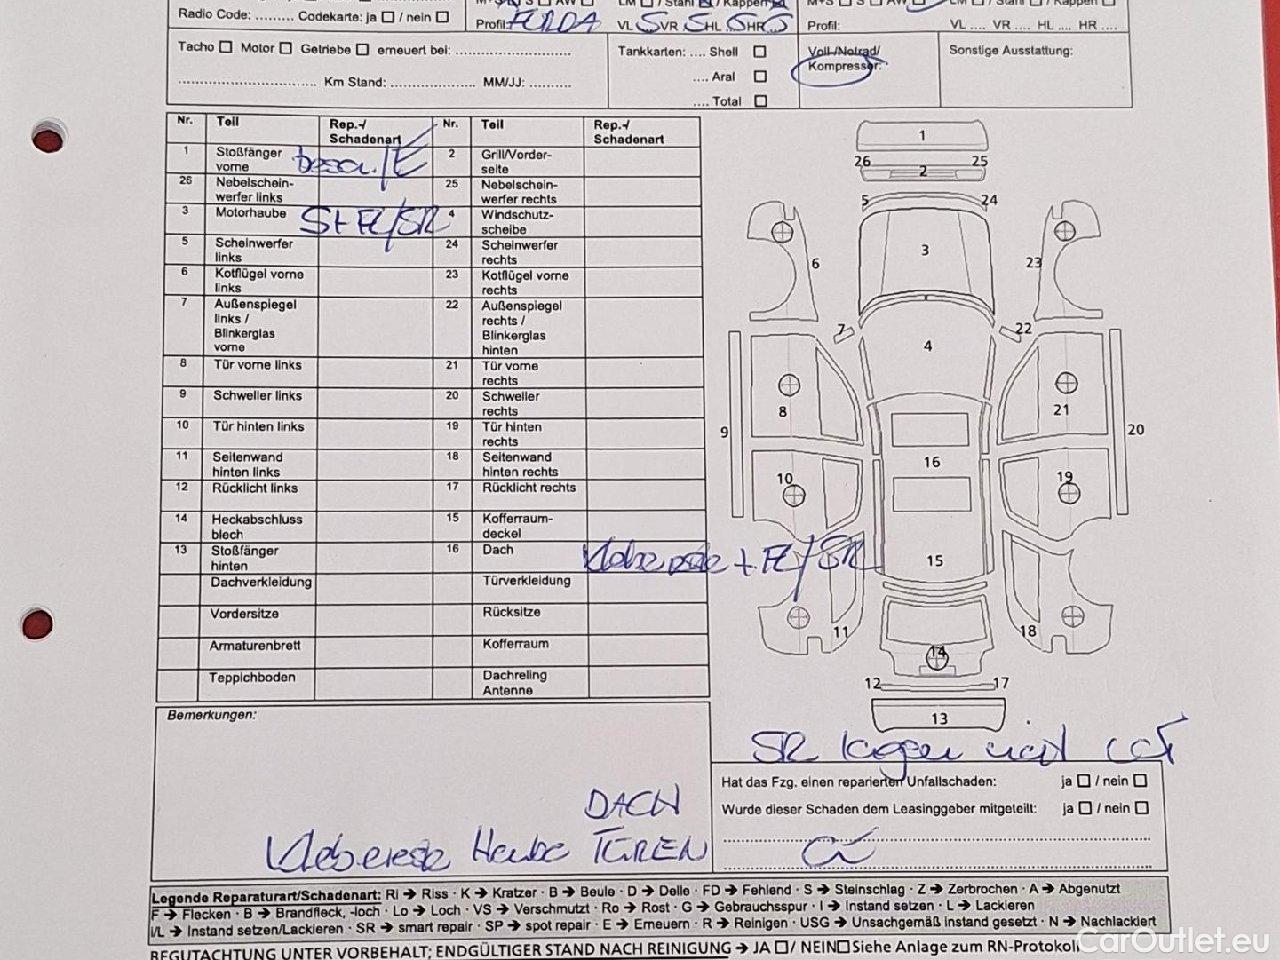 Radio Code: ......... Codekarte: ja ☐ / nein ☐
Profil: FULDA
VL 5 VR 5 HL 5 HR 5
Profil:
VL .... VR .... HL .... HR ....
Tacho ☐ Motor ☐ Getriebe ☐ erneuert bei: ..........................
Km Stand: ................... MM/JJ: ..........
Tankkarten: .... Shell ☐
.... Aral ☐
.... Total ☐
Voll-/Notrad/
Kompressor:
Sonstige Ausstattung:
Nr. Teil Rep.-/ Schadenart Nr. Teil Rep.-/ Schadenart
1 Stoßfänger vorne 2 Grill/Vorder-seite
26 Nebelschein-werfer links 25 Nebelschein-werfer rechts
3 Motorhaube St FL/SR 4 Windschutz-scheibe
5 Scheinwerfer links 24 Scheinwerfer rechts
6 Kotflügel vorne links 23 Kotflügel vorne rechts
7 Außenspiegel links / Blinkerglas vorne 22 Außenspiegel rechts / Blinkerglas hinten
8 Tür vorne links 21 Tür vorne rechts
9 Schweller links 20 Schweller rechts
10 Tür hinten links 19 Tür hinten rechts
11 Seitenwand hinten links 18 Seitenwand hinten rechts
12 Rücklicht links 17 Rücklicht rechts
14 Heckabschluss blech 15 Kofferraum-deckel
13 Stoßfänger hinten 16 Dach Klebereste + FL/SR
Dachverkleidung Türverkleidung
Vordersitze Rücksitze
Armaturenbrett Kofferraum
Teppichboden Dachreling Antenne
1
26 25
2
5 24
3
6 23
7 22
4
8 21
9 20
16
10 19
15
11 18
14
12 17
13
Bemerkungen:
DACH
Klebereste Haube TÜREN
Hat das Fzg. einen reparierten Unfallschaden: ja ☐ / nein ☐
Wurde dieser Schaden dem Leasinggeber mitgeteilt: ja ☐ / nein ☐
Legende Reparaturart/Schadenart: RI → Riss · K → Kratzer · B → Beule · D → Delle · FD → Fehlend · S → Steinschlag · Z → Zerbrochen · A → Abgenutzt
F → Flecken · B → Brandfleck, -loch · Lo → Loch · VS → Verschmutzt · Ro → Rost · G → Gebrauchsspur · I → Instand setzen · L → Lackieren
I/L → Instand setzen/Lackieren · SR → smart repair · SP → spot repair · E → Erneuern · R → Reinigen · USG → Unsachgemäß instand gesetzt · N → Nachlackiert
BEGUTACHTUNG UNTER VORBEHALT; ENDGÜLTIGER STAND NACH REINIGUNG → JA ☐ / NEIN ☐ Siehe Anlage zum RN-Protokoll
CarOutlet.eu